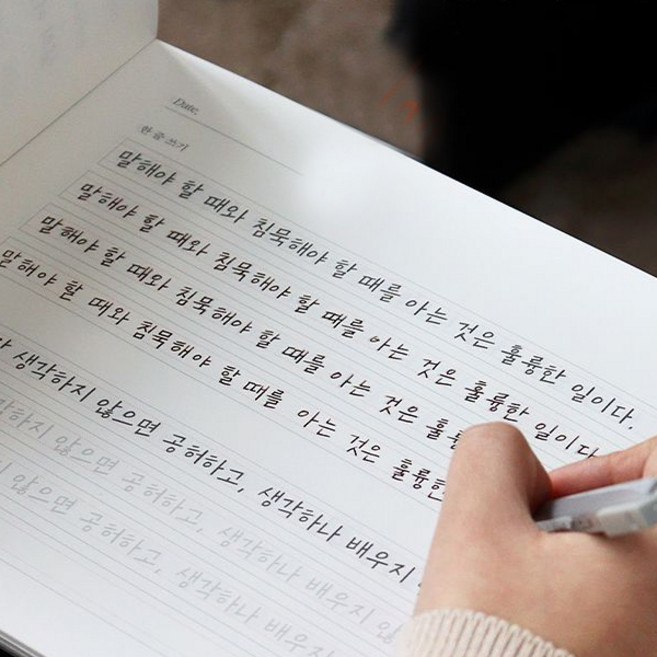 Date.
한글쓰기
말해야 할 때와 침묵해야 할 때를 아는 것은 훌륭한 일이다.
말해야 할 때와 침묵해야 할 때를 아는 것은 훌륭한 일이다.
말해야 할 때와 침묵해야 할 때를 아는 것은 훌륭
말해야 할 때와 침묵해야 할 때를 아는 것은 훌륭한
생각하지 않으면 공허하고, 생각하나 배우지
각하지 않으면 공허하고, 생각하나 배우지 않
않으면 공허하고, 생각하나 배우지